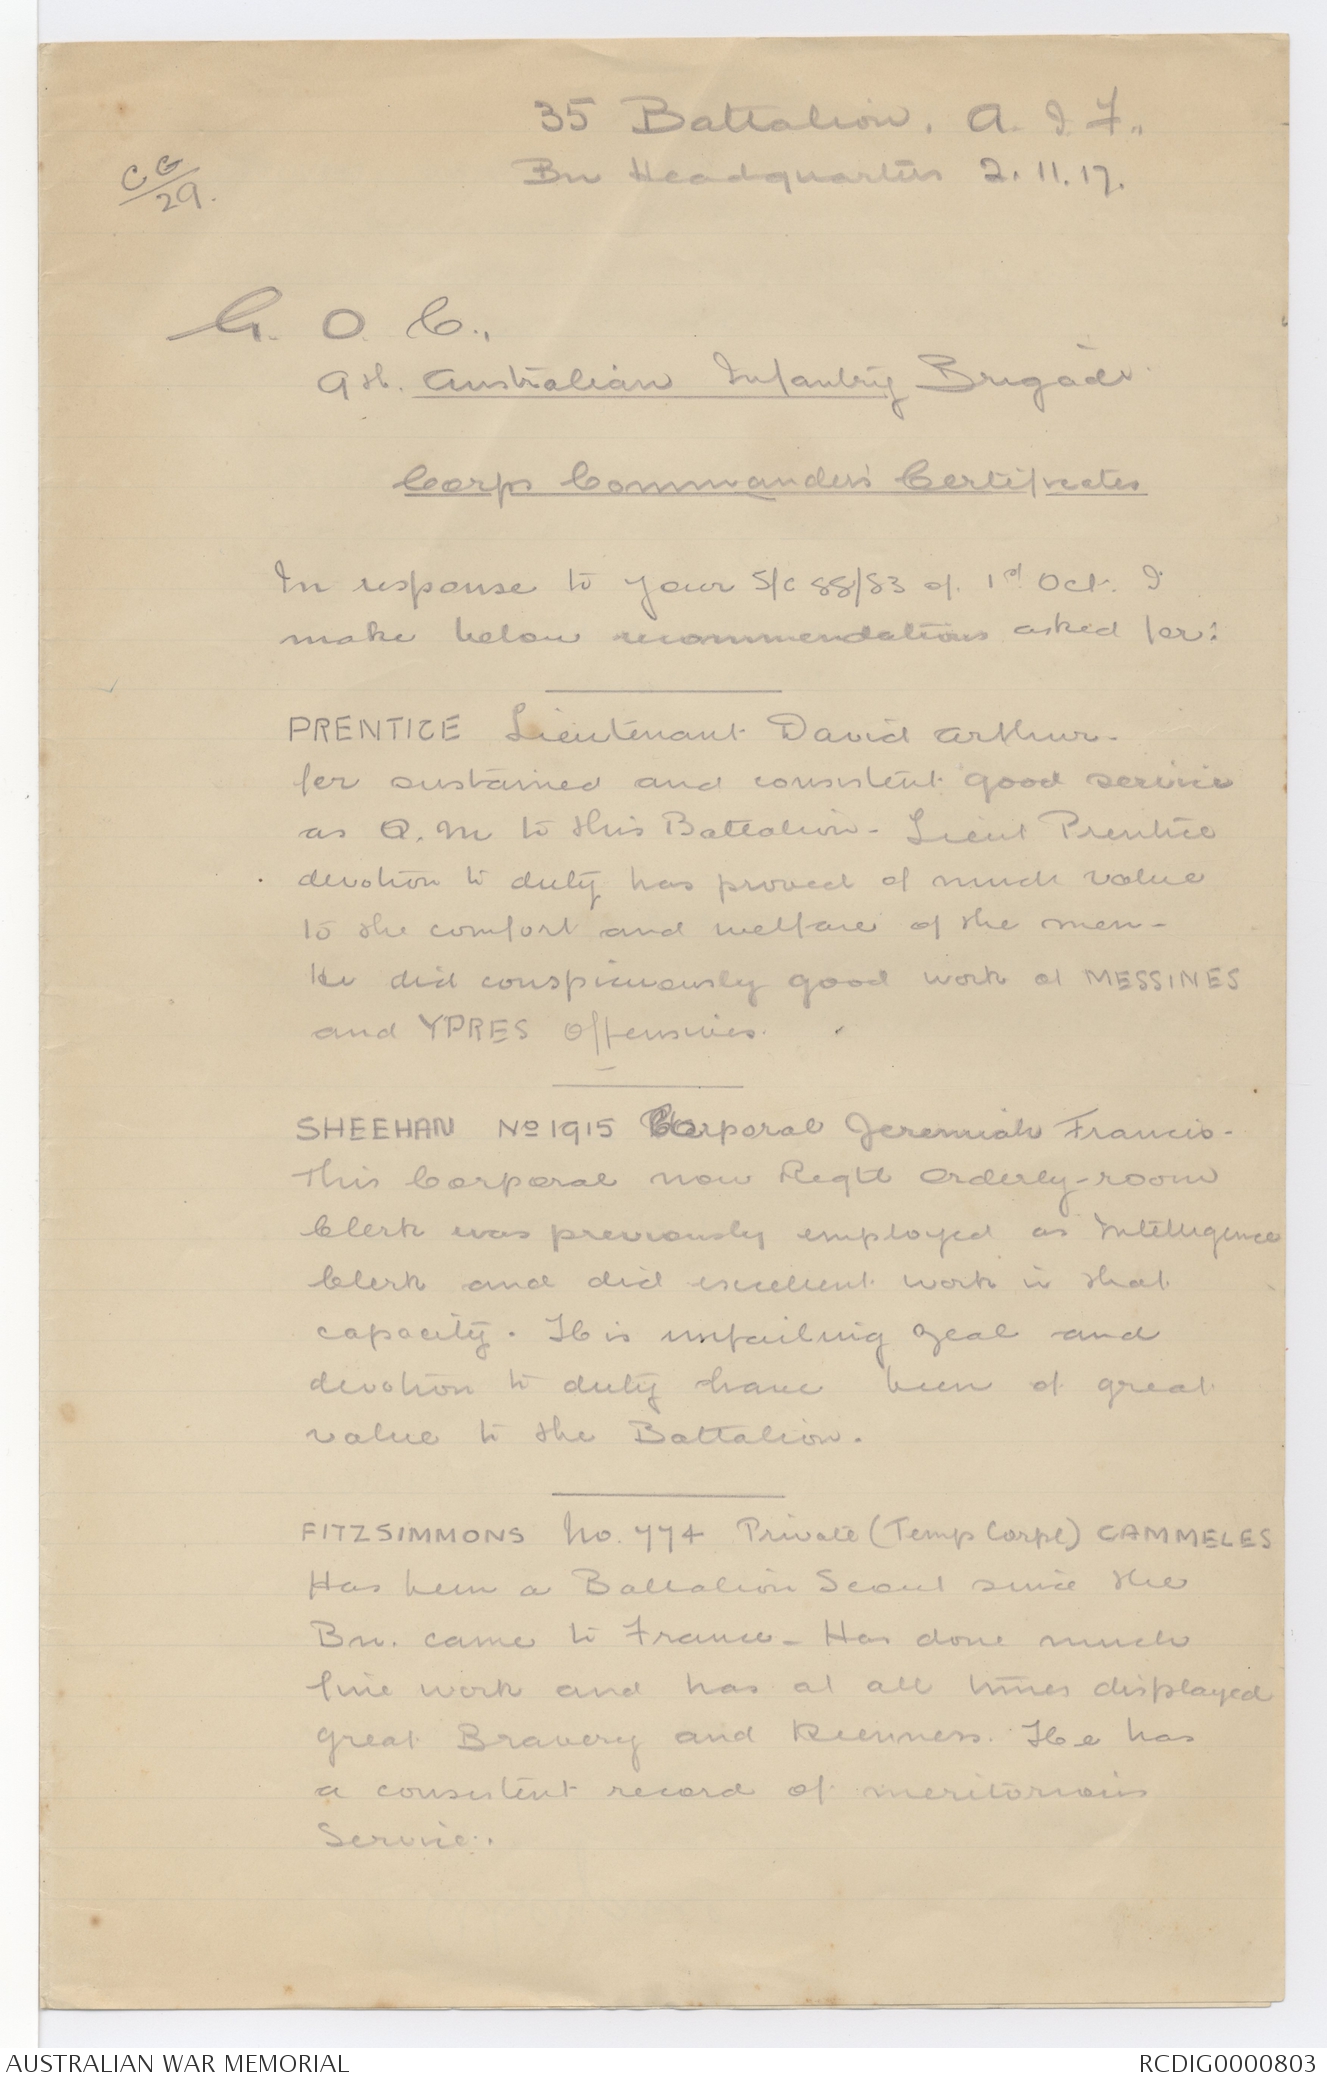 35 Battalion. A. I. F.,
Bn Headquarters 2.11.17.
CG/29.
G. O. C.,
9th. Australian Infantry Brigade.
Corps Commander's Certificates
In response to your S/C 88/83 of 1st Oct. I
make below recommendations asked for:
PRENTICE Lieutenant David Arthur -
for sustained and consistent good service
as Q.M to this Battalion - Lieut Prentice
devotion to duty has proved of much value
to the comfort and welfare of the men -
He did conspicuously good work at MESSINES
and YPRES Offensives.
SHEEHAN No 1915 Corporal Jeremiah Francis -
This Corporal now Regtl Orderly-room
Clerk was previously employed as Intelligence
Clerk and did excellent work in that
capacity. His unfailing zeal and
devotion to duty have been of great
value to the Battalion.
FITZSIMMONS No. 774 Private (Temp Corpl) CAMMELES
Has been a Battalion Scout since the
Bn. came to France - Has done much
fine work and has at all times displayed
great Bravery and Keenness. He has
a consistent record of meritorious
Service.
AUSTRALIAN WAR MEMORIAL
RCDIG0000803